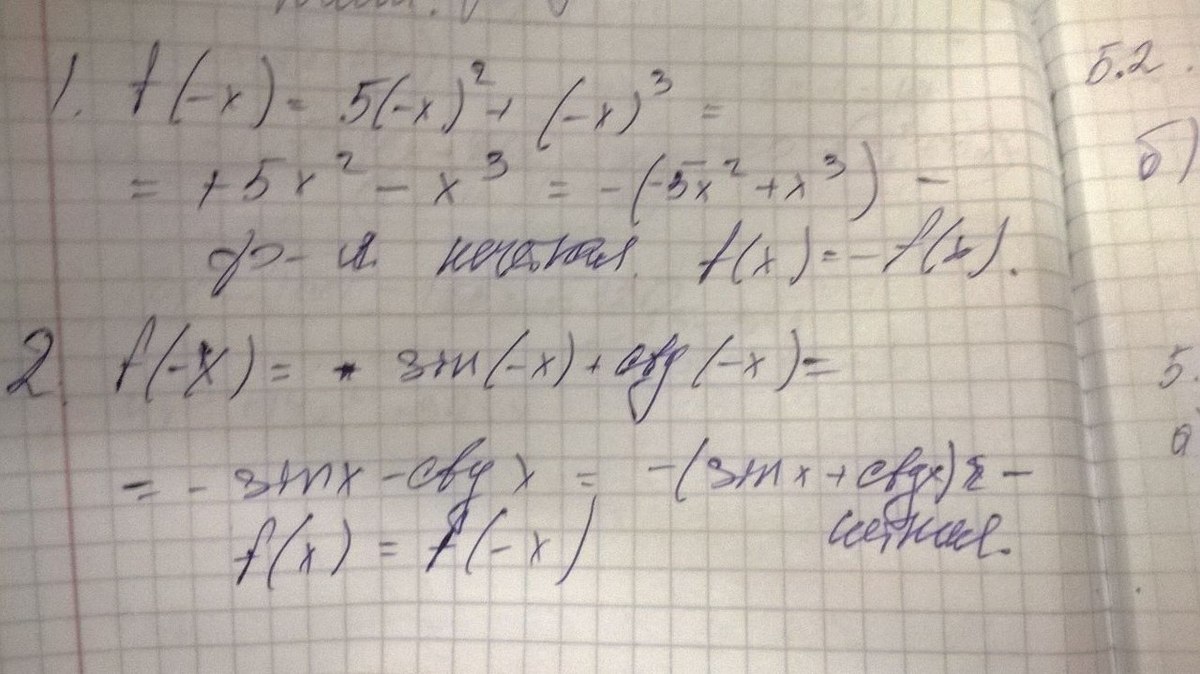 1. f(-x) = 5(-x)² + (-x)³ =
= +5x² - x³ = -(-5x² + x³) -
ф-я нечетная. f(x) = -f(x).
2. f(-x) = sin(-x) + ctg(-x) =
= - sin x - ctg x = -(sin x + ctg x) -
четная.
f(x) = f(-x)
5.2.
б)
5.